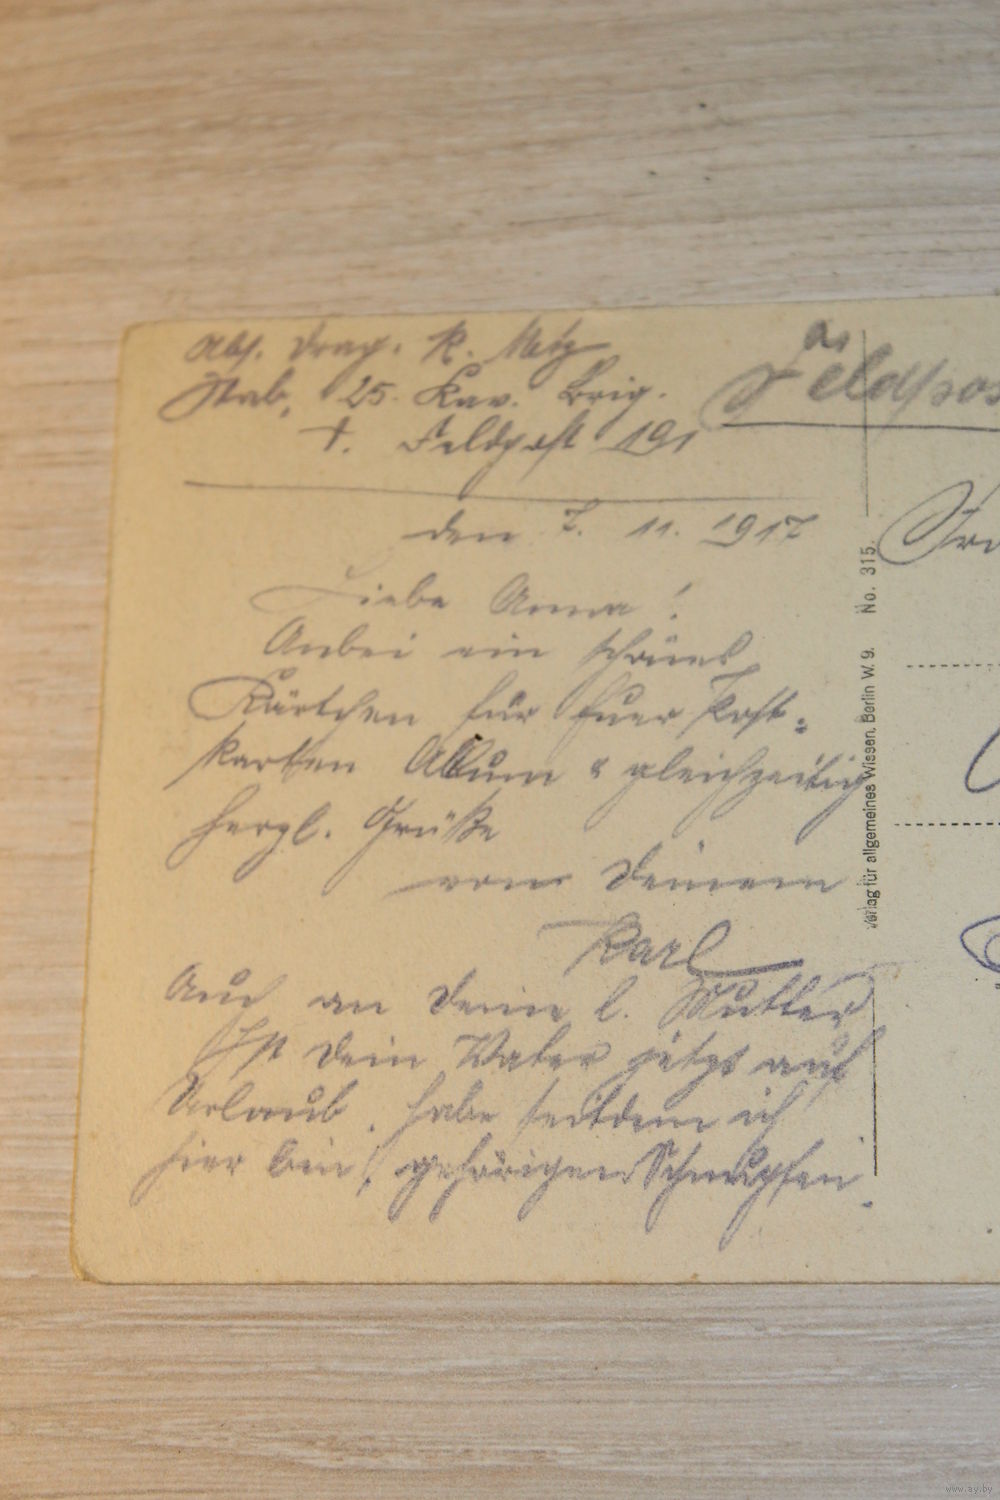 Abs. Drag. K. Metz
Stab, 25. Kav. Brig.
†. Feldpost 191
Feldpos
den 7. 11. 1917
Liebe Anna!
Anbei ein schönes
Kärtchen für Euer Post-
karten Album & gleichzeitig
herzl. Grüße
von Deinem
Karl
Auch an Deine l. Mutter
Ist Dein Vater jetzt auf
Urlaub. habe seitdem ich
hier bin, gehörigen Schnupfen.
Verlag für allgemeines Wissen, Berlin W. 9. No. 315.
www.ay.by